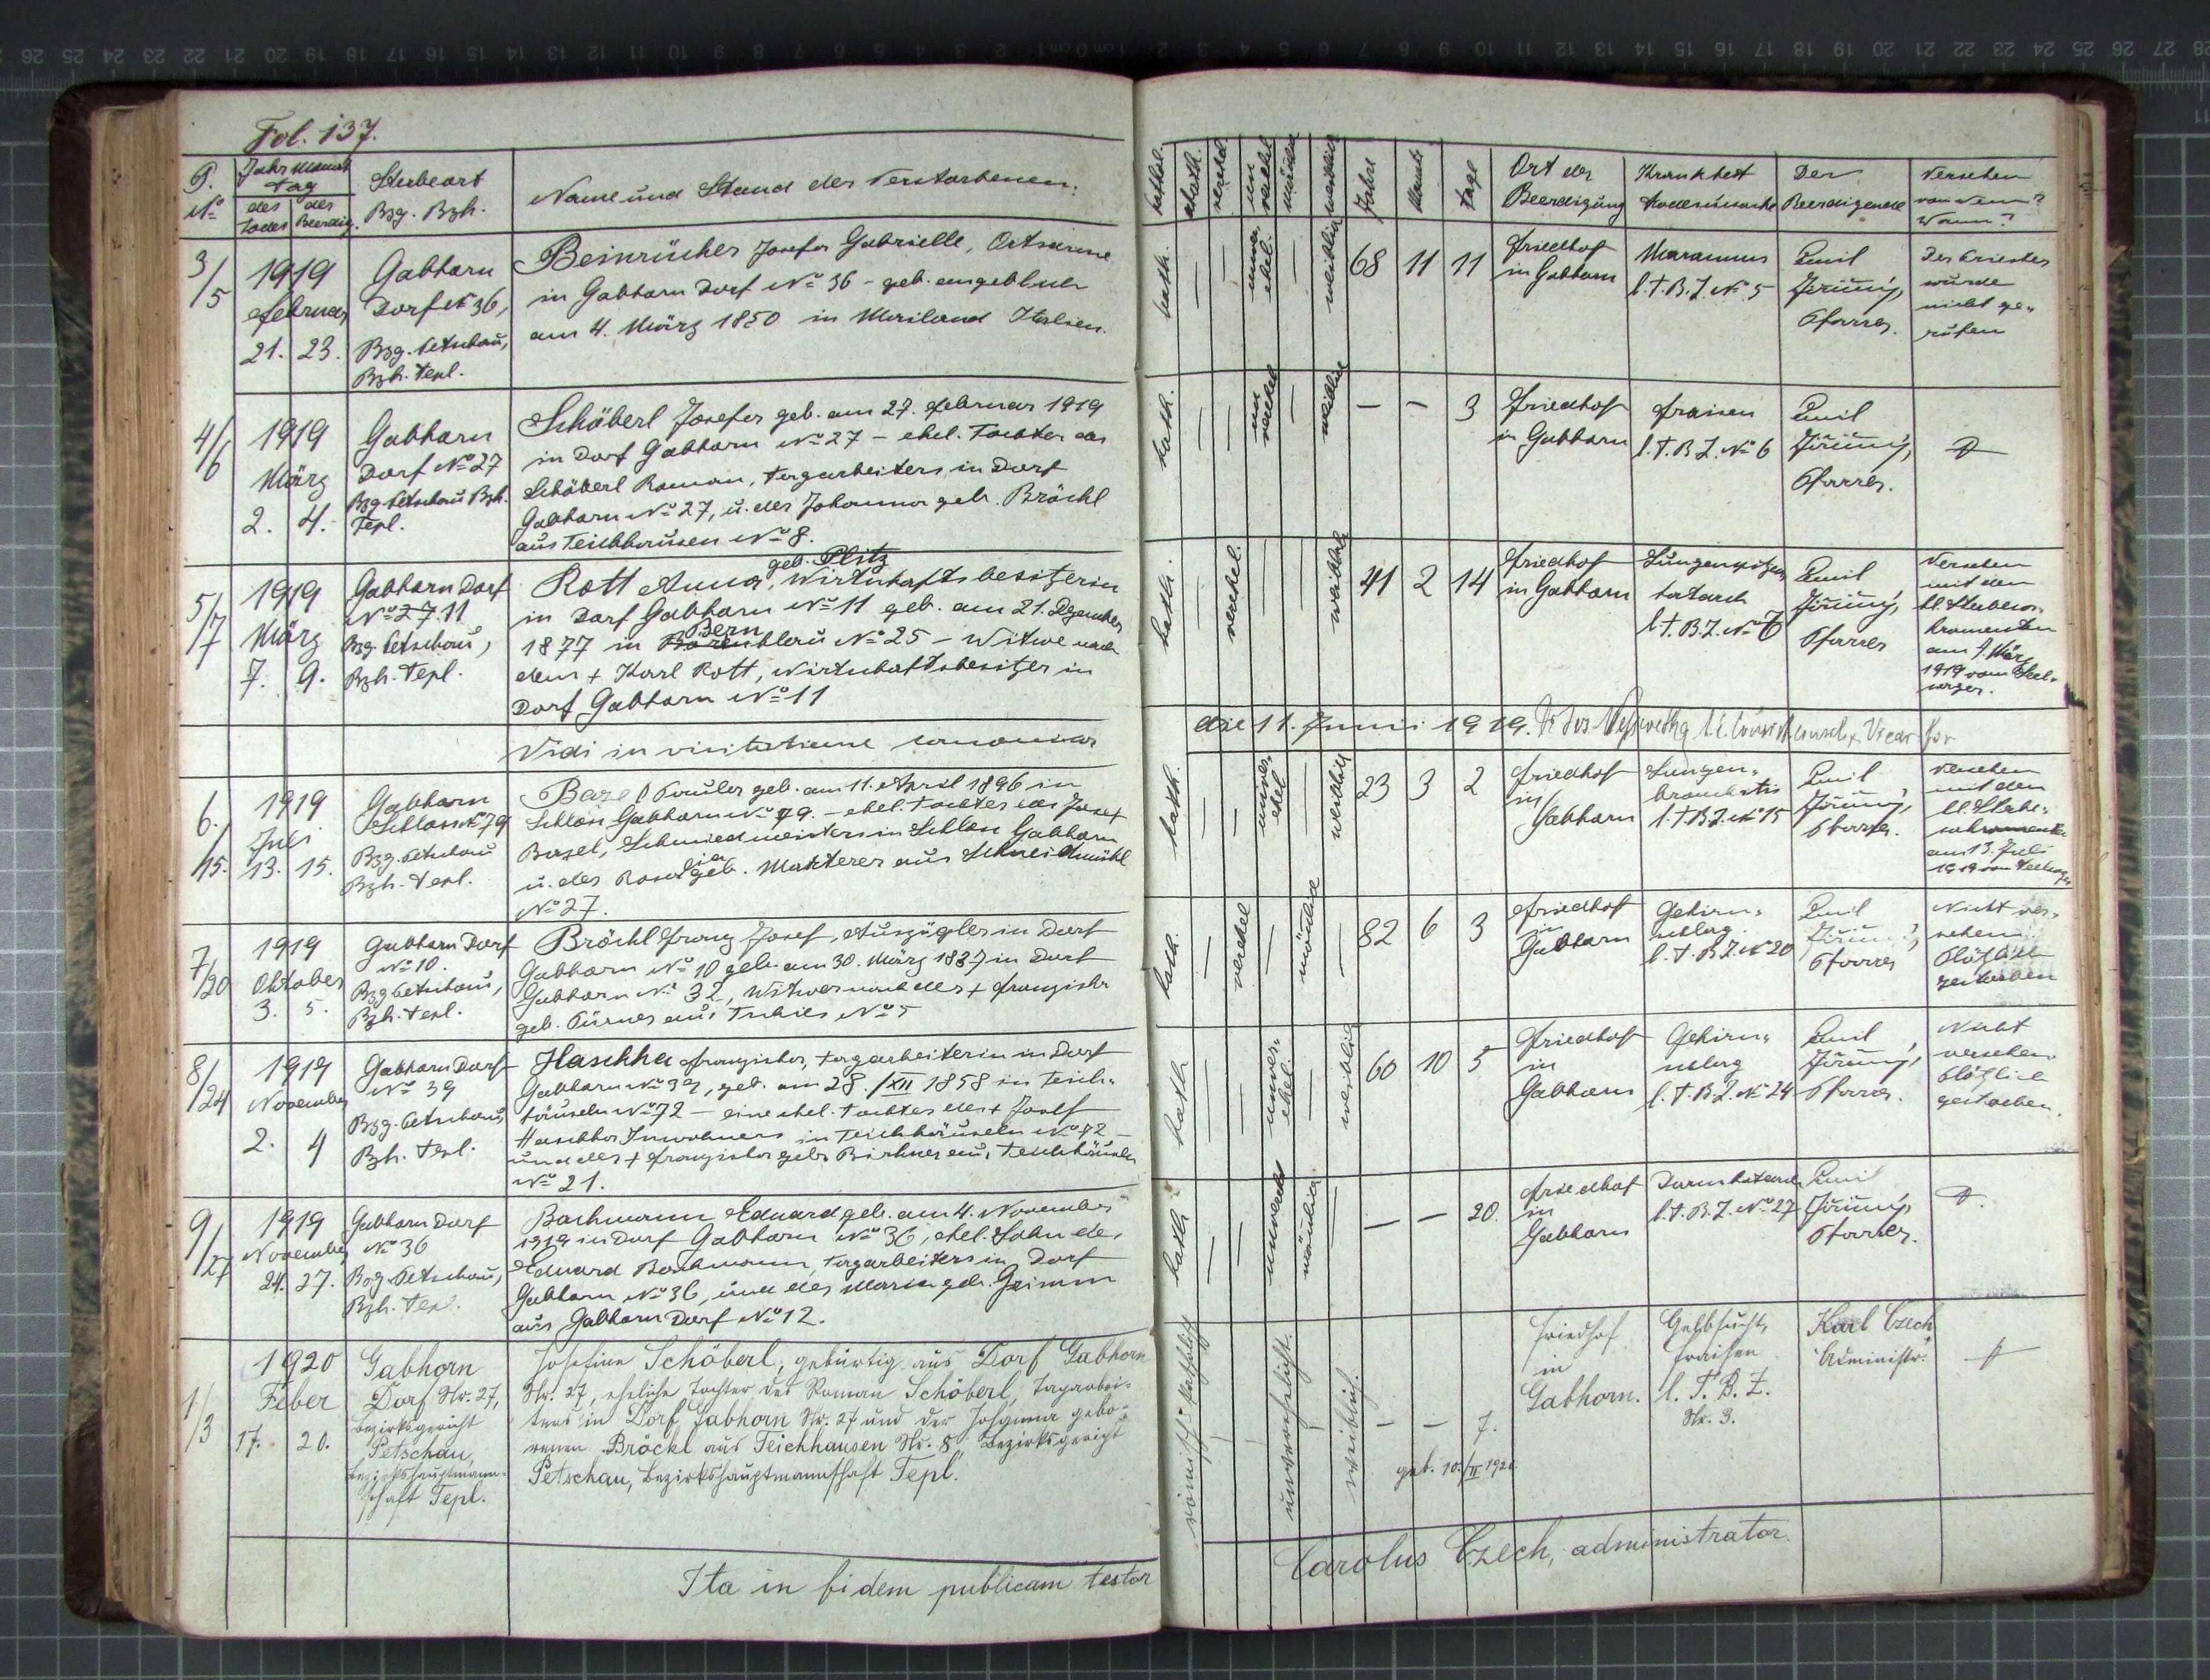 Fol. 137.
P. No
Jahr Monat Tag
des Todes
des Beerdig.
Sterbeort
Bzg. Bzh.
Name und Stand des Verstorbenen.
3/5
1919
Februar
21. 23.
Gabhorn
Dorf No 36,
Bzg. Petschau,
Bzh. Tepl.
Beinrücher Josefa Gabrielle, Ortsarme
in Gabhorn Dorf No 36 - geb. angeblich
am 4. März 1850 in Mailand Italien.
4/6
1919
März
2. 4.
Gabhorn
Dorf No 27
Bzg. Petschau Bzh.
Tepl.
Schöberl Josefa geb. am 27. Februar 1919
in Dorf Gabhorn No 27 - ehel. Tochter des
Schöberl Roman, Tagarbeiters in Dorf
Gabhorn No 27, u. der Johanna geb. Bröckl
aus Teichhausen No 8.
5/7
1919
März
7. 9.
Gabhorn Dorf
No 27. 11
Bzg. Petschau,
Bzh. Tepl.
geb. Plitz
Rott Anna, Wirtschaftsbesitzerin
in Dorf Gabhorn No 11 geb. am 21. Dezember
Bern
1877 in No 25 - Witwe nach
dem + Karl Rott, Wirtschaftsbesitzer in
Dorf Gabhorn No 11
Vidi in visitatione canonica
6./15.
1919
Juli
13. 15.
Gabhorn
Schloss No 79
Bzg. Petschau
Bzh. Tepl.
Bazel Paula geb. am 11. April 1896 in
Schloss Gabhorn No 79. - ehel. Tochter des Josef
Bazel, Schmiedmeisters in Schloss Gabhorn
u. der Rosalia geb. Makterer aus Schneidmühl
No 27.
7/20
1919
Oktober
3. 5.
Gabhorn Dorf
No 10.
Bzg. Petschau,
Bzh. Tepl.
Bröckl Franz Josef, Auszügler in Dorf
Gabhorn No 10 geb. am 30. März 1837 in Dorf
Gabhorn No 32, Witwer nach der + Franziska
geb. Pürner aus Tschies No 5
8/24
1919
November
2. 4
Gabhorn Dorf
No 39
Bzg. Petschau,
Bzh. Tepl.
Haschka Franziska, Tagarbeiterin in Dorf
Gabhorn No 39, geb. am 28./XII 1858 in Teich-
häuseln No 72 - eine ehel. Tochter des + Josef
Haschka Inwohners in Teichhäuseln No 72 -
und der + Franziska geb. Birkner aus Teichhäuseln
No 21.
9/27
1919
November
24. 27.
Gabhorn Dorf
No 36
Bzg. Petschau,
Bzh. Tepl.
Bachmann Eduard geb. am 4. November
1919 in Dorf Gabhorn No 36, ehel. Sohn des
Eduard Bachmann, Tagarbeiters in Dorf
Gabhorn No 36, und der Maria geb. Grimm
aus Gabhorn Dorf No 12.
1/3
1920
Feber
17. 20.
Gabhorn
Dorf Nr. 27,
Bezirksgericht
Petschau,
Bezirkshauptmann-
schaft Tepl.
Josefine Schöberl, gebürtig aus Dorf Gabhorn
Nr. 27, eheliche Tochter des Roman Schöberl, Tagarbei-
ters in Dorf Gabhorn Nr. 27 und der Johanna gebo-
renen Bröckl aus Teichhausen Nr. 8, Bezirksgericht
Petschau, Bezirkshauptmannschaft Tepl.
Ita in fidem publicam testor
kathol.
akath.
verehel
un verehel
männlich
weiblich
Jahre
Monate
Tage
Ort der Beerdigung
Krankheit Todesursache
Der Beerdigende
Versehen von wem? Wann?
kath.
unver ehel.
weiblich
68 11 11
Friedhof
in Gabhorn
Marasmus
l. T. B. Z. No 5
Emil
Jirimý,
Pfarrer.
Der Priester
wurde
nicht ge-
rufen
kath.
un verehel
weiblich
— — 3
Friedhof
in Gabhorn
Fraisen
l. T. B. Z. No 6
Emil
Jirimý,
Pfarrer.
kath.
verehel.
weiblich
41 2 14
Friedhof
in Gabhorn
Lungenspitzen
katarrh
l. T. B. Z. No 7
Emil
Jirimý,
Pfarrer
Versehen
mit den
hl. Sterbesa-
kramenten
am 1. März
1919 vom Seel-
sorger.
die 11. Junii 1919.
kath.
unver ehel
weiblich
23 3 2
Friedhof
in
Gabhorn
Lungen-
bronchitis
l. T. B. Z. No 15
Emil
Jirimý,
Pfarrer.
Versehen
mit den
hl. Sterbe-
sakramenten
am 13. Juli
1919 vom Seelsorger
kath.
verehel
männlich
82 6 3
Friedhof
in
Gabhorn
Gehirn-
schlag
l. T. B. Z. No 20
Emil
Jirimý,
Pfarrer
Nicht ver-
sehen
Plötzlich
gestorben
kath
unver- ehel.
weiblich
60 10 5
Friedhof
in
Gabhorn
Gehirn-
schlag
l. T. B. Z. No 24
Emil
Jirimý,
Pfarrer.
Nicht
versehen.
Plötzlich
gestorben.
kath
unverehel
männlich
— — 20.
Friedhof
in
Gabhorn
Darmkatarrh
l. T. B. Z. No 27
Emil
Jirimý,
Pfarrer.
römisch-katholisch
unverehelicht.
weiblich.
— — 7.
geb. 10./II 1920
Friedhof
in
Gabhorn.
Gelbsucht,
Fraisen
l. T. B. Z.
Nr. 3.
Karl Czech
Administr.
Carolus Czech, administrator.